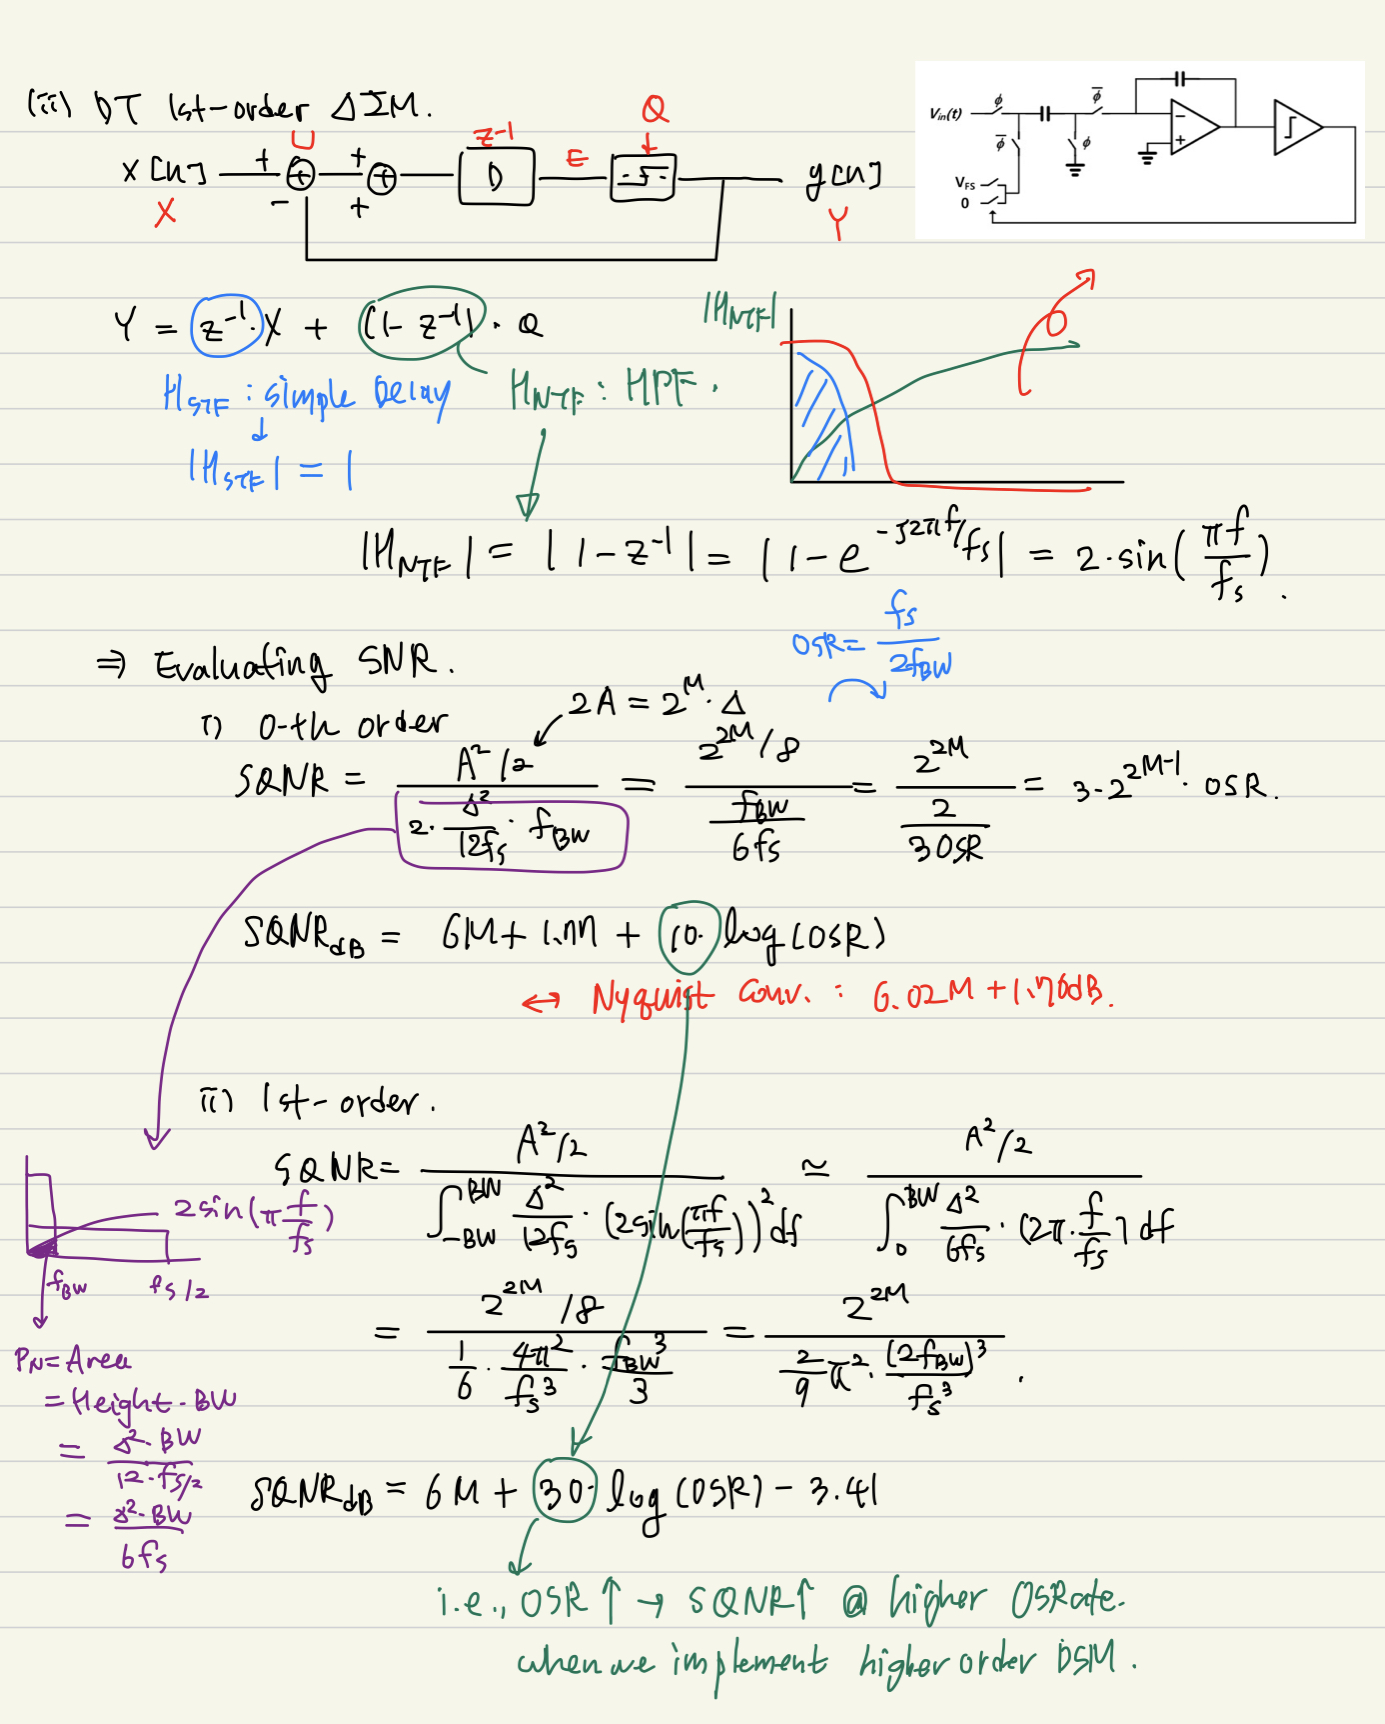 (iii) DT 1st-order ΔΣM.
X[n] + - U + + D z⁻¹ E Q y[n]
X Y
Vin(t) ϕ ϕ̅ ϕ̅ ϕ - +
VFS
0
Y = z⁻¹·X + (1-z⁻¹)·Q
|H_NTF|
H_STF : simple Delay
H_NTF : HPF.
|H_STF| = 1
|H_NTF| = |1-z⁻¹| = |1-e^(-j2πf/fs)| = 2·sin(πf/fs).
OSR = fs/2f_BW
⇒ Evaluating SNR.
i) 0-th order
2A = 2^M·Δ
SQNR = (A²/2)/(2·Δ²/12fs·f_BW) = (2^2M/8)/(f_BW/6fs) = 2^2M/(2/3OSR) = 3·2^(2M-1)·OSR.
SQNR_dB = 6M + 1.77 + 10·log(OSR)
↔ Nyquist Conv. : 6.02M + 1.76dB.
ii) 1st-order.
SQNR = (A²/2)/(∫_-BW^BW Δ²/12fs·(2sin(πf/fs))²df) ≃ (A²/2)/(∫_0^BW Δ²/6fs·(2π·f/fs)df
2sin(πf/fs)
f_BW fs/2
= (2^2M/8)/(1/6·4π²/fs³·f_BW³/3) = 2^2M/(2/9π²·(2f_BW)³/fs³).
P_N = Area
= Height·BW
= Δ²·BW/12·fs/2
= Δ²·BW/6fs
SQNR_dB = 6M + 30·log(OSR) - 3.41
i.e., OSR↑ → SQNR↑ @ higher OSRate.
when we implement higher order DSM.